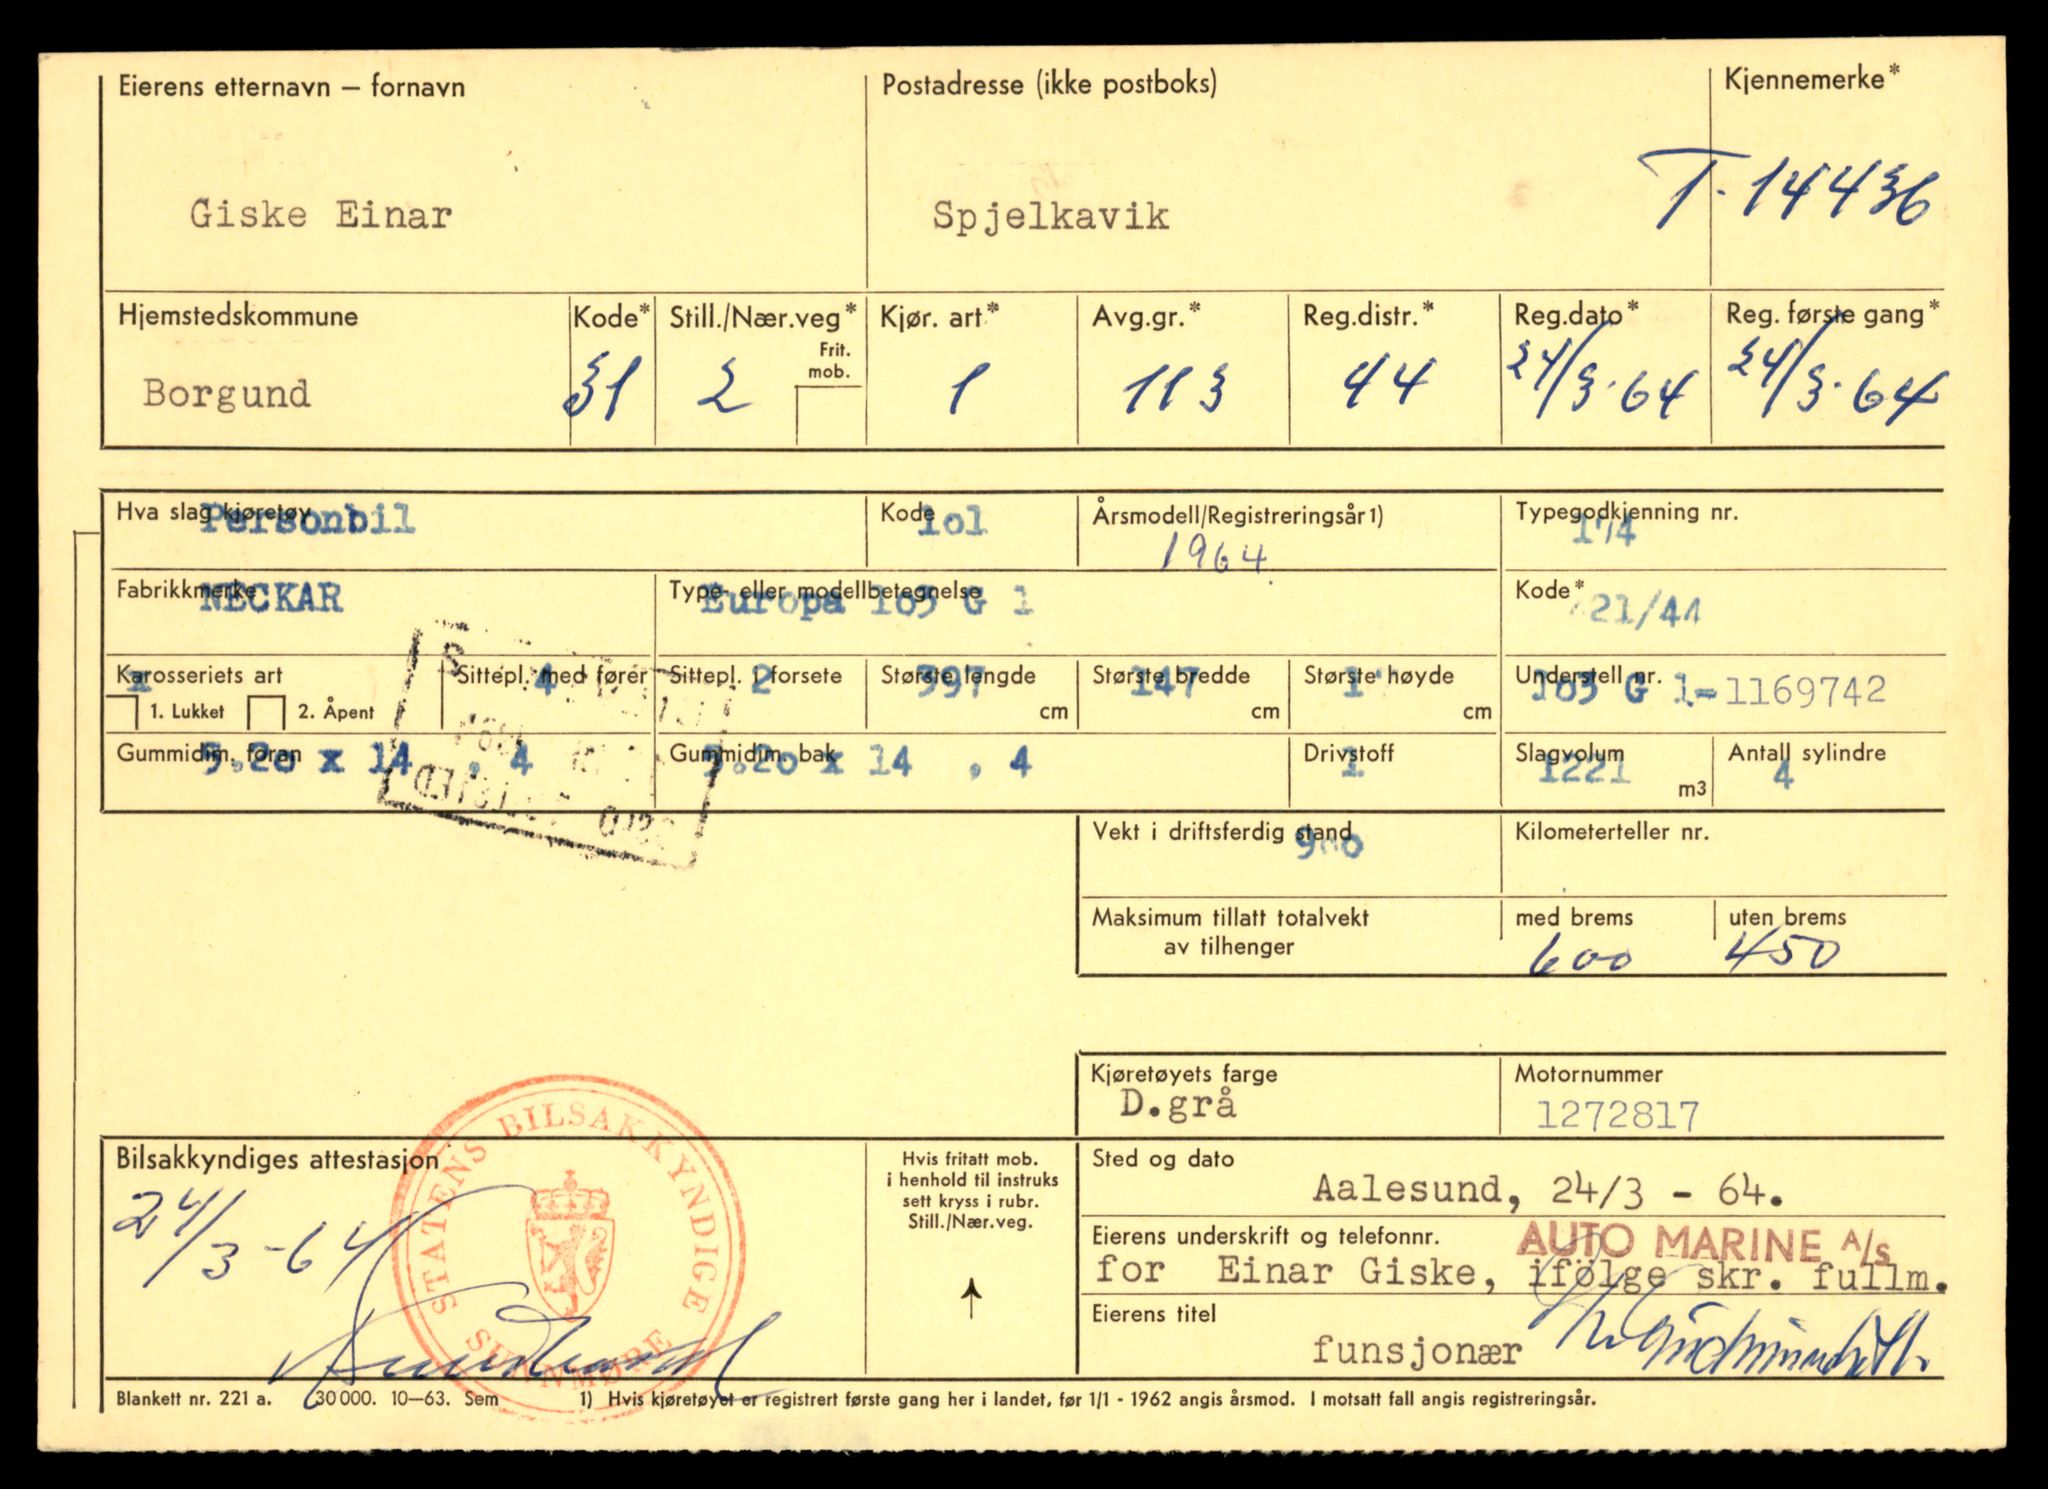 Eierens etternavn — fornavn
Postadresse (ikke postboks)
Kjennemerke*
Giske Einar
Spjelkavik
T-14436
Hjemstedskommune
Kode*
Still./Nær.veg*
Frit. mob.
Kjør. art*
Avg.gr.*
Reg.distr.*
Reg.dato*
Reg. første gang*
Borgund
31
2
1
113
44
24/3-64
24/3-64
Hva slag kjøretøy
Personbil
Kode
1o1
Årsmodell/Registreringsår1)
1964
Typegodkjenning nr.
174
Fabrikkmerke
NECKAR
Type- eller modellbetegnelse
Europa 1o3 G 1
Kode*
21/44
Karosseriets art
1
1. Lukket
2. Åpent
Sittepl. med fører
4
Sittepl. i forsete
2
Største lengde
397
cm
Største bredde
147
cm
Største høyde
1
cm
Understell nr.
1o3 G 1-1169742
Gummidim. foran
5.2o x 14 , 4
Gummidim. bak
5.2o x 14 , 4
Drivstoff
1
Slagvolum
1221
m3
Antall sylindre
4
Vekt i driftsferdig stand
Kilometerteller nr.
Maksimum tillatt totalvekt
av tilhenger
med brems
600
uten brems
450
Kjøretøyets farge
D.grå
Motornummer
1272817
Bilsakkyndiges attestasjon
24/3-64
STATENS BILSAKKYNDIGE
SUNNMØRE
Hvis fritatt mob.
i henhold til instruks
sett kryss i rubr.
Still./Nær.veg.
Sted og dato
Aalesund, 24/3 - 64.
Eierens underskrift og telefonnr.
AUTO MARINE A/S
for Einar Giske, ifølge skr. fullm.
Eierens titel
funsjonær
Blankett nr. 221 a. 30000. 10—63. Sem
1) Hvis kjøretøyet er registrert første gang her i landet, før 1/1 - 1962 angis årsmod. I motsatt fall angis registreringsår.